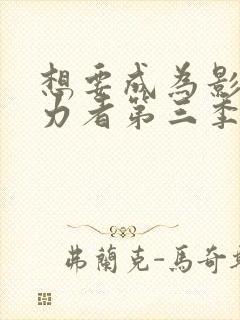 想要成為影
力者第三季
弗蘭克-馬奇